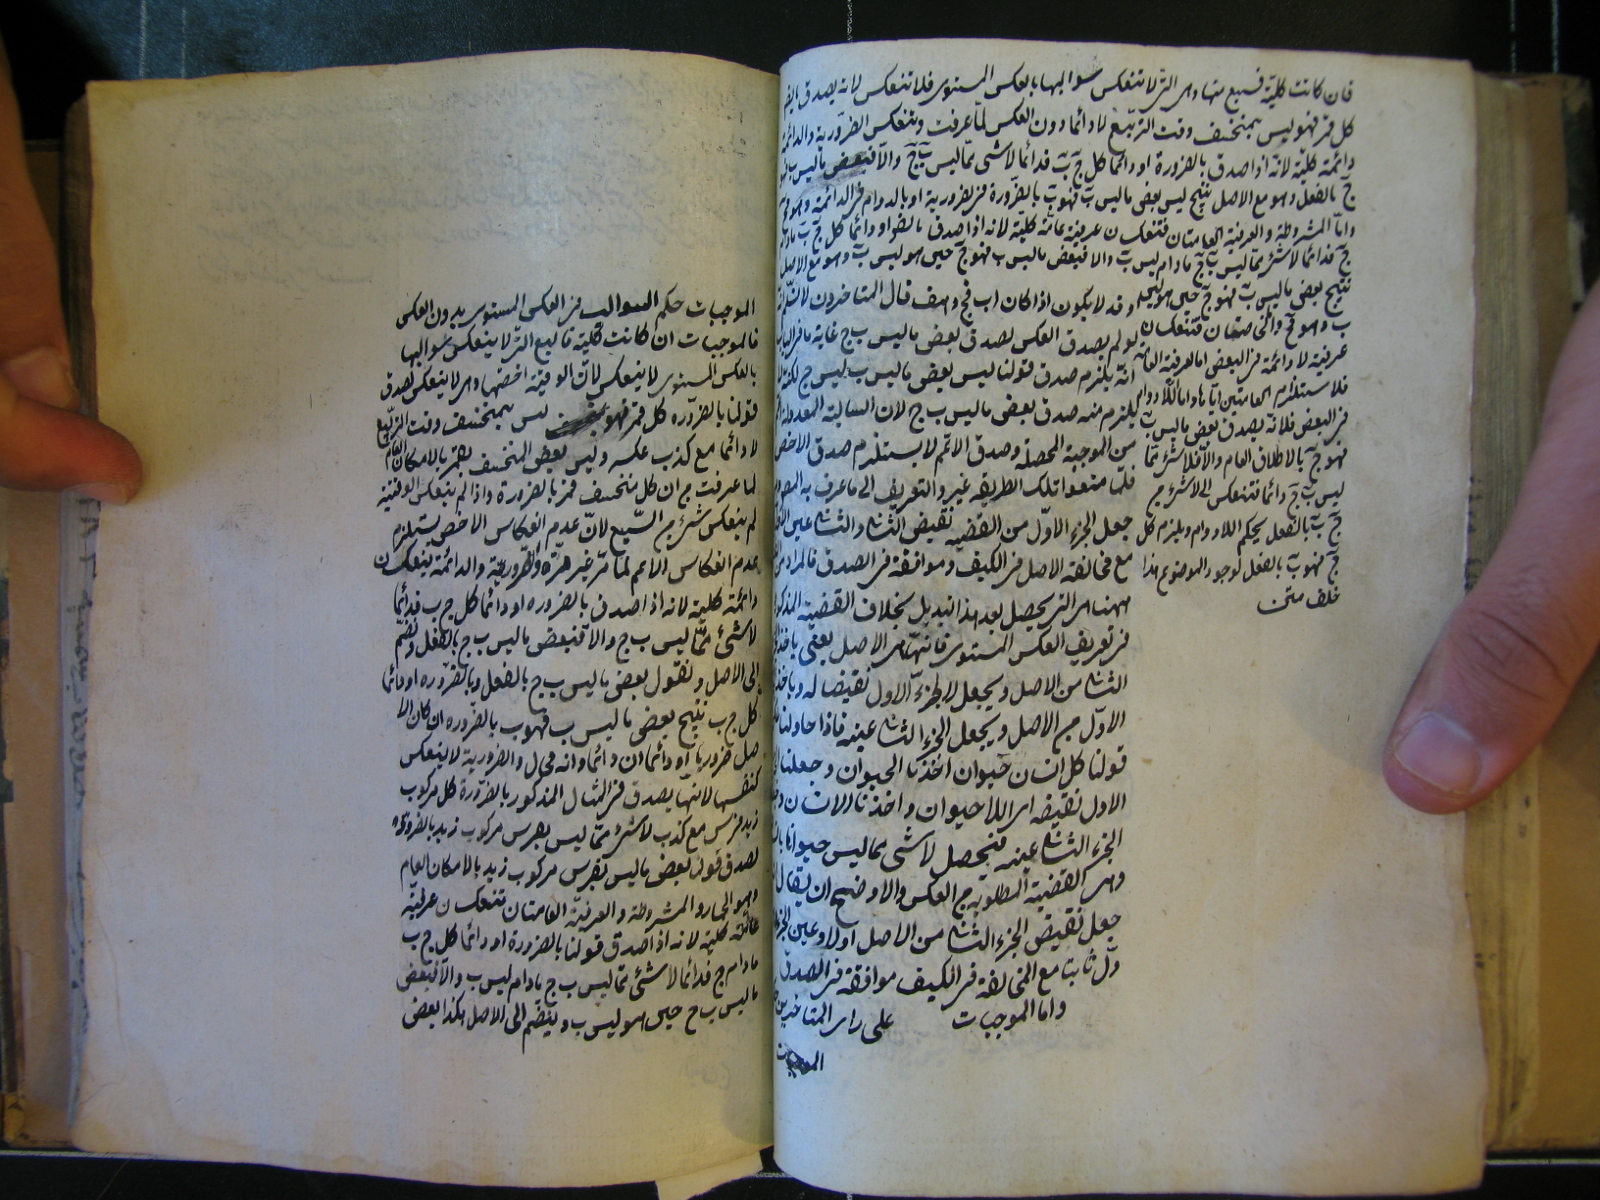 فان كانت كلية فسبع منها وهى التى لا تنعكس سوالبها بالعكس المستوى فلا تنعكس لانه يصدق بالضر
كل قمر فهو ليس بمنخسف وقت التربيع لا دائما دون العكس لما عرفت وتنعكس الضرورية والدائمة
دائمة كلية لانه اذا صدق بالضرورة او دائما كل ج ب فدائما لا شى مما ليس ب ج والا فبعض ما ليس ب فهو
ج بالفعل وهو مع الاصل ينتج ليس بعض ما ليس ب فهو ب بالضرورة فى الضرورية او بالدوام فى الدائمة وهو مح
واما المشروطة والعرفية العامتان فتنعكسان عرفية عامة كلية لانه اذا صدق بالضر او دائما كل ج ب ما دام
ج فدائما لا شئ مما ليس ب ج ما دام ليس ب والا فبعض ما ليس ب فهو ج حين هو ليس ب وهو مع الاصل
ينتج بعض ما ليس ب فهو ب حين هو ليس
ب وهو مح والخاصتان فتنعكسان
عرفية لا دائمة فى البعض اما العرفية العامة
فلاستلزام العامتين اياها واما اللادوام
فى البعض فلانه يصدق بعض ما ليس ب
فهو ج بالاطلاق العام والا فلا شئ مما
ليس ب ج دائما فتنعكس الى لا شئ من
ج ب بالفعل بحكم اللادوام ويلزم كل
ج فهو ب بالفعل لوجود الموضوع هذا
خلف متن
وقد لا يكون اذا كان اب ج وهف قال المتاخرون لا نسلم انه
لو لم يصدق العكس لصدق بعض ما ليس ب ج غاية ما فى الباب
انه يلزم صدق قولنا ليس بعض ما ليس ب ليس ج لكنه لا
يلزم منه صدق بعض ما ليس ب ج لان السالبة المعدولة اعم
من الموجبة المحصلة وصدق الاعم لا يستلزم صدق الاخص
فلما منعوا تلك الطريقة غيروا التعريف الى ما عرف به المص
جعل الجزء الاول من القضية نقيض الثانى والثانى عين الاول
مع مخالفة الاصل فى الكيف وموافقة فى الصدق فالمراد من
ههنا هى التى يحصل بعد هذا التبديل بخلاف القضية المذكورة
فى تعريف العكس المستوى فانها هى الاصل يعنى ياخذ
الثانى من الاصل ويجعل الجزء الاول نقيضا له وياخذ
الاول من الاصل ويجعل الجزء الثانى عينه فاذا حاولنا
قولنا كل انسان حيوان اخذنا الحيوان وجعلنا
الاول نقيضه اى اللا حيوان واخذنا الانسان
الجزء الثانى عينه فيحصل لا شى مما ليس حيوانا
وهى القضية المطلوبة من العكس والاوضح ان يقال
جعل نقيض الجزء الثانى من الاصل اولا وعين الجزء
ول ثانيا مع المخالفة فى الكيف موافقة فى الصدق
واما الموجبات على راى المتاخرين
الموجبات حكم السوالب فى العكس المستوى بدون العكس
فالموجبات ان كانت كلية فالسبع التى لا ينعكس سوالبها
بالعكس المستوى لا ينعكس لان الوقتية اخصها وهى لا ينعكس لصدق
قولنا بالضرورة كل قمر فهو ليس بمنخسف وقت التربيع
لا دائما مع كذب عكسه وليس بعض المنخسف بقمر بالامكان العام
لما عرفت من ان كل منخسف قمر بالضرورة واذا لم ينعكس الوقتية
لم ينعكس شئ من السبع لان عدم انعكاس الاخص يستلزم
عدم انعكاس الاعم لما مر غير مرة والضرورية والدائمة ينعكسان
دائمة كلية لانه اذا صدق بالضرورة او دائما كل ج ب فدائما
لا شئ مما ليس ب ج والا فبعض ما ليس ب ج بالفعل ونضم
الى الاصل ونقول بعض ما ليس ب ج بالفعل وبالضرورة او دائما
كل ج ب ينتج بعض ما ليس ب فهو ب بالضرورة ان كان الا
صل ضروريا او دائما ان دائما وانه محال والضرورية لا ينعكس
كنفسها لانها يصدق فى المثال المذكور بالضرورة كل مركوب
زيد فرس مع كذب لا شئ مما ليس بفرس مركوب زيد بالضرورة
لصدق قولنا بعض ما ليس بفرس مركوب زيد بالامكان العام
وهو الحمار والمشروطة والعرفية العامتان تنعكسان عرفية
عامة كلية لانه اذا صدق قولنا بالضرورة او دائما كل ج ب
ما دام ج فدائما لا شئ مما ليس ب ج ما دام ليس ب والا فبعض
ما ليس ب ج حين هو ليس ب وينضم الى الاصل هكذا بعض